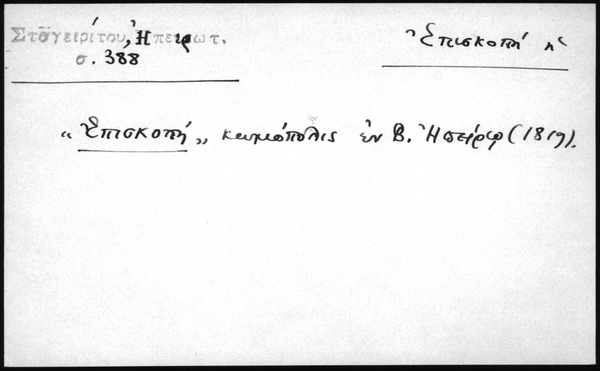 Σταγειρίτου, Ἠπειρωτ.
σ. 388
Ἐπισκοπή ἡ
„Ἐπισκοπή„ κωμόπολις ἐν Β. Ἠπείρῳ (1819).